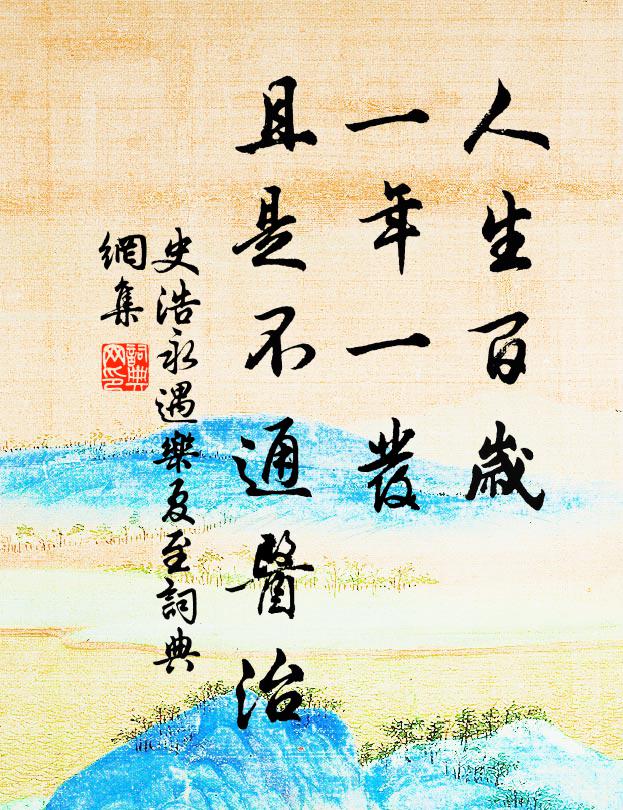 人生百歲
一年一發
且是不通醫治
史浩永遇樂夏至詞典
網集
詞典
网印